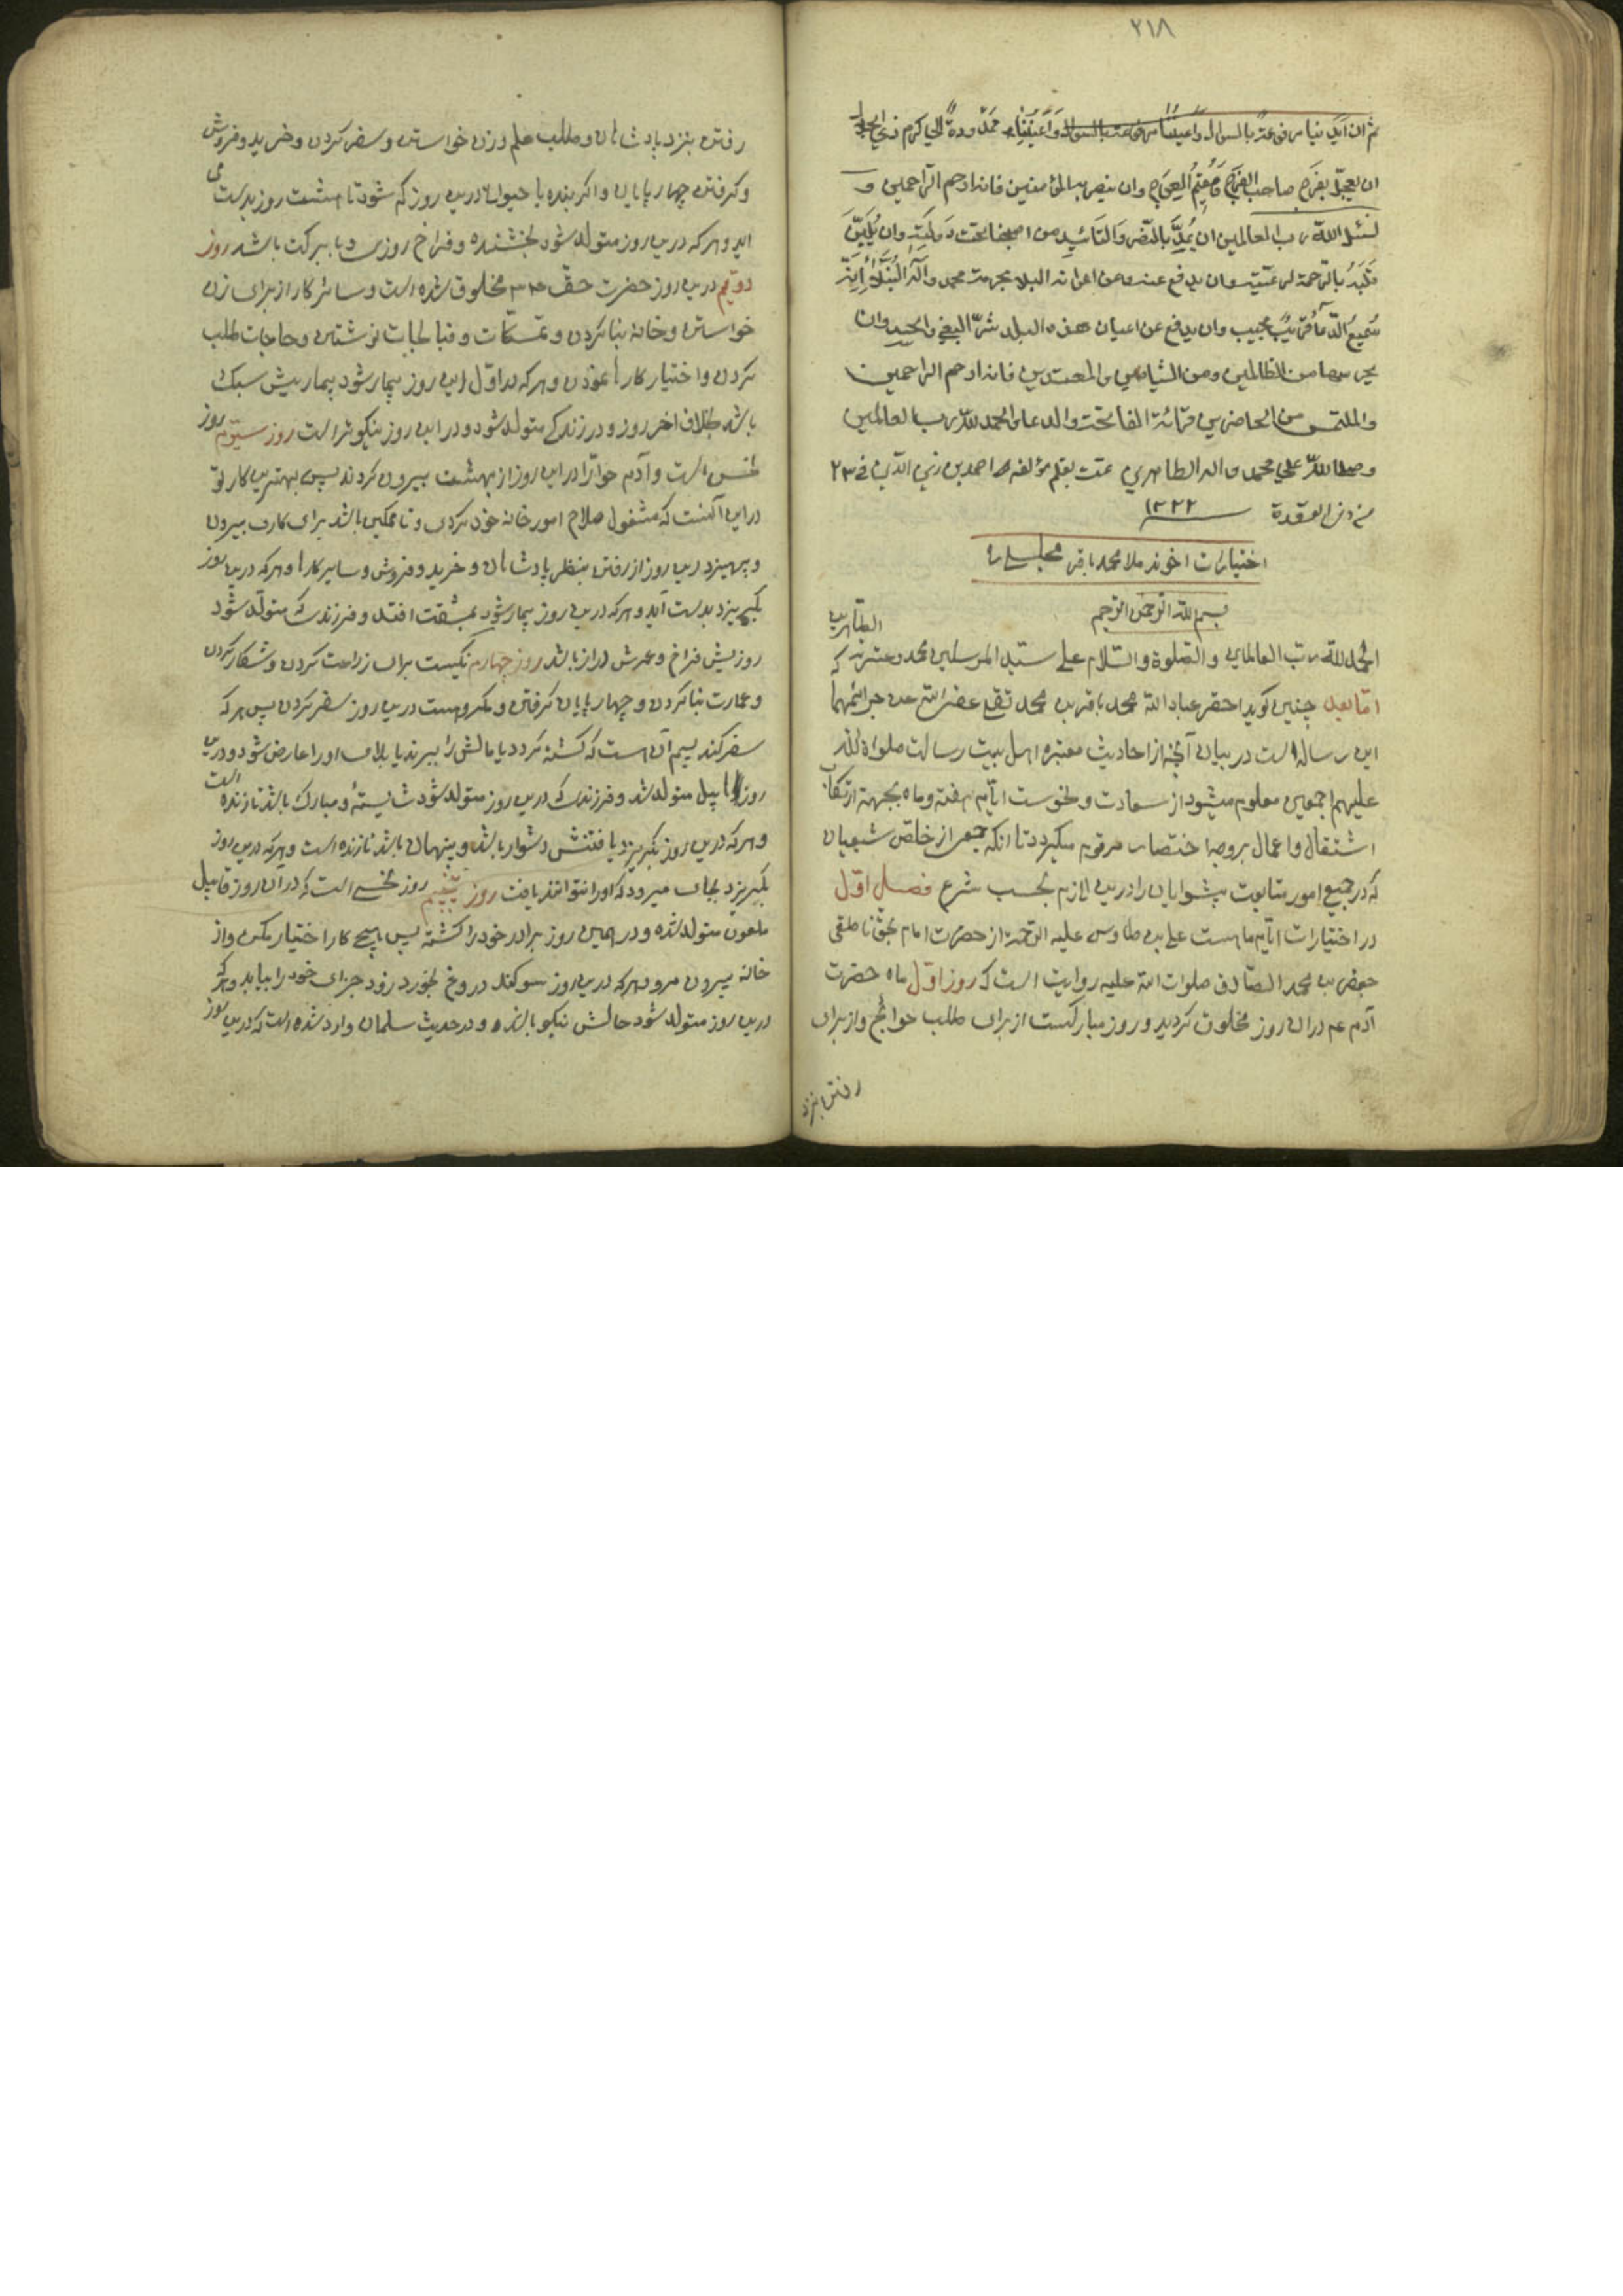 ٢١٨
ثم ان ايدينا مرفوعة بالسوال واعيننا ممدودة الى كرم ذي الجلال
ان يعجل بفرج صاحب الفرج ومقيم العوج وان ينصر به المؤمنين فانه ارحم الراحمين و
نسئل الله رب العالمين ان يمد بالنصر والتائيد من اصبحنا تحت دولته وان يلين
قلبه بالرحمة لرعيته وان يدفع عنه وعن اعوانه البلاء بحرمة محمد وآله
سميع الدعاء قريب مجيب وان يدفع عن اعيان هذه البلد شر البغي والحسد وان
يحرسها من الظالمين ومن الشياطين والمعتدين فانه ارحم الراحمين
والملتمس من الحاضرين قرائة الفاتحة والدعاء والحمد لله رب العالمين
وصلى الله على محمد واله الطاهرين تمت بقلم مؤلفه احمد بن زين الدين في ٢٣
من ذي القعدة ١٢٢٢
اختيارات اخوند ملا محمد باقر مجلسى ره
بسم الله الرحمن الرحيم
الحمد لله رب العالمين والصلوة والسلام على سيد المرسلين محمد وعترته الطاهرين
اما بعد چنين كويد احقر عباد الله محمد باقر بن محمد تقى عفى الله عن جرائمهما كه
اين رساله است در بيان آنچه از احاديث معتبره اهل بيت رسالت صلواة الله
عليهم اجمعين معلوم ميشود از سعادت و نحوست ايام هفته وماه بجهة ارتكاب
اشتغال واعمال بروجه اختصار مرقوم ميكردد تا انكه جمعى از خلص شيعيان
كه در جميع امور متابعت پيشوايان را درين لازم بحسب شرع فصل اول
در اختيارات ايام ماهست على بن طاوس عليه الرحمة از حضرت امام بحق ناطق
جعفر بن محمد الصادق صلوات الله عليه روايت است كه روز اول ماه حضرت
آدم عم در ان روز مخلوق كرديد و روز مباركست از براى طلب حوائج واز براى
رفتن بنزد
رفتن بنزد پادشاهان وطلب علم وزن خواستن و سفر كردن وخريد وفروش
وكرفتن چهار پايان واكر بنده يا حيوان درين روز كم شود تا هشت روز بدست مى
ايد و هر كه درين روز متولد شود بخشنده وفراخ روزى و با بركت باشد روز
دويم درين روز حضرت حوّا مخلوق شده است وسائر كار از براى زن
خواستن وخانه بنا كردن و تمسكات وقبالجات نوشتن وحاجات طلب
كردن واختيار كارها نمودن وهر كه در اول اين روز بيمار شود بيماريش سبك
باشد بخلاف اخر روز و در زندكى متولد شود و در اين روز نيكو تر است روز سيوم روز
نحس است وآدم حوّا را در اين روز از بهشت بيرون كردند پس بهترين كار تو
در اين آنست كه مشغول صلاح امور خانه خود كردى و تا ممكن باشد براى كارى بيرون
وپرهيز درين روز از رفتن بنظر پادشاهان وخريد وفروش وساير كارها وهر كه درين روز
بكريزد بدست آيد و هر كه درين روز بيمار شود بمشقت افتد و فرزندى كه متولد شود
روزيش فراخ وعمرش دراز باشد روز چهارم نيكست براى زراعت كردن و شكار كردن
و عمارت بنا كردن و چهار پايان كرفتن و مكروهست درين روز سفر كردن پس هر كه
سفر كند بيم آن هست كه كشته كردد يا مالش را ببرند يا بلائى او را عارض شود و درين
روز هابيل متولد شد و فرزندى كه درين روز متولد شود شايسته و مبارك باشد تا زنده است
و هر كه درين روز بكريزد يافتنش دشوار باشد و پنهان باشد تا زنده است و هر كه درين روز
بكريزد بجائى ميرود كه او را نتوانند يافت روز پنجم روز نحسى است كه در ان روز قابيل
ملعون متولد شده و در همين روز برادر خود را كشته پس هيچ كار اختيار مكن و از
خانه بيرون مرو و هر كه درين روز سوكند دروغ بخورد زود جزاى خود را بيابد و هر كه
درين روز متولد شود حالش نيكو باشد و در حديث سلمان وارد شده است كه درين روز